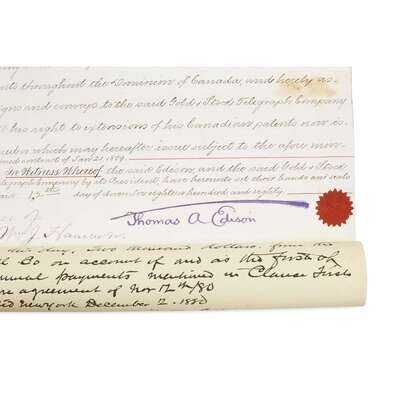 nts throughout the Dominion of Canada, and hereby as-
signs and conveys to the said Gold & Stock Telegraph Company
r his right to extensions of his Canadian patents now is-
sued or which may hereafter issue subject to the afore men-
tioned contract of Jan 21 1879.
In Witness Whereof the said Edison, and the said Gold & Stock
Telegraph Company by its President have hereunto set their hands and seals
this 12th day of November eighteen hundred and eighty.
Thomas A Edison
day, Two thousand dollars from the
l Co on account of and as the first of
annual payments mentioned in Clause First
agreement of Nov 12th/80
New York December 2. 1880